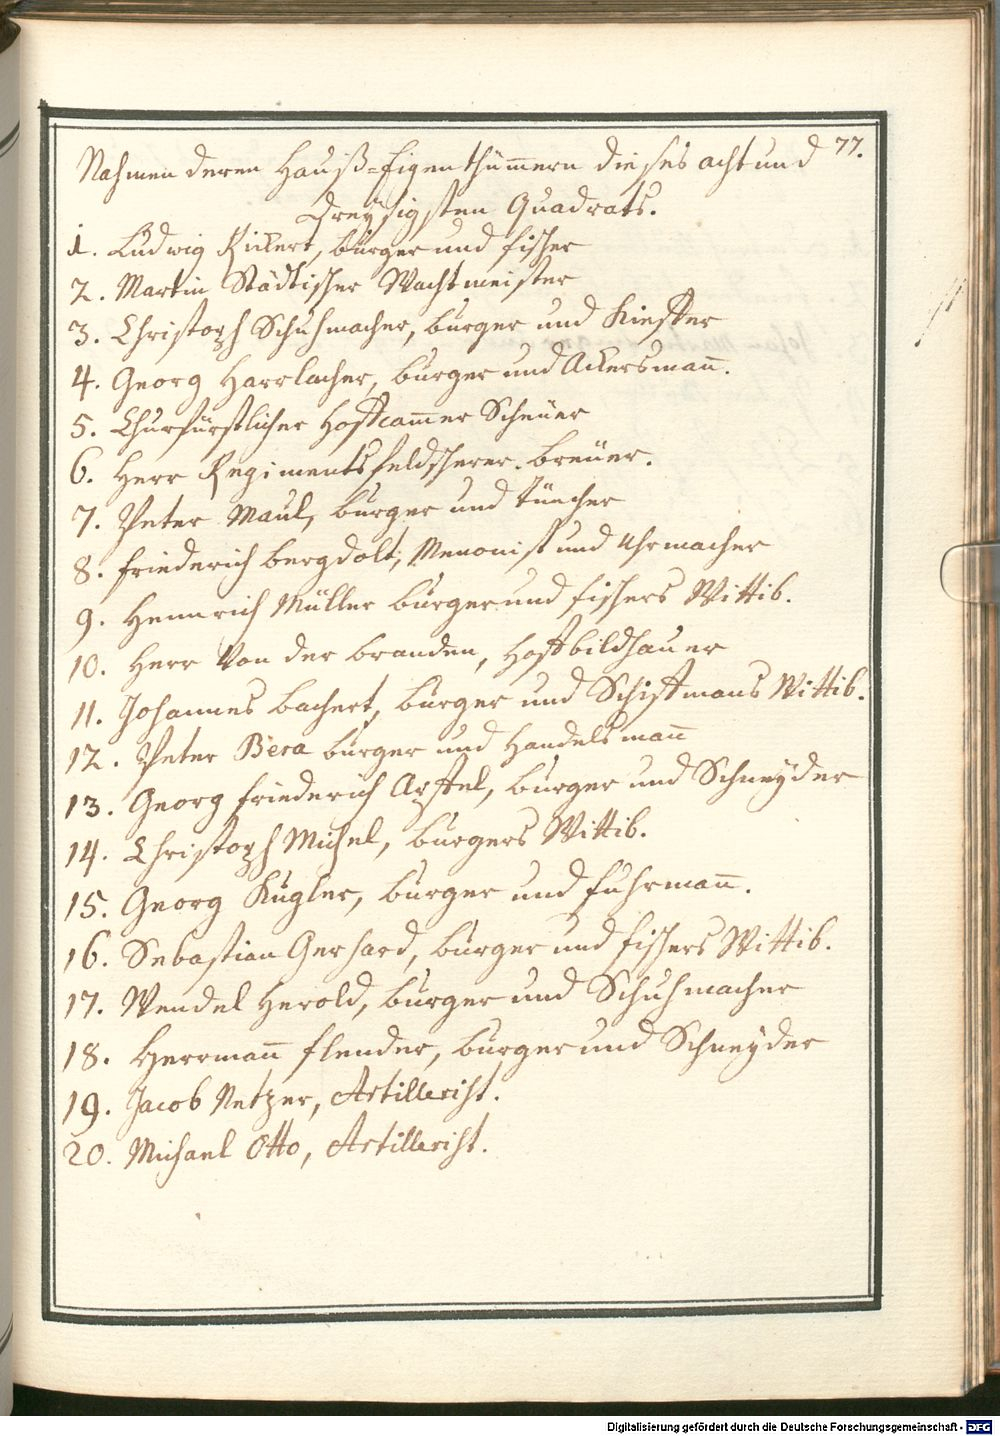 77.
Nahmen deren Hauß=Eigenthümmern dieses acht und
dreysigsten Quadrats.
1. Ludwig Rickert, bürger und fischer
2. Martin Städtischer Wachtmeister
3. Christoph Schuhmacher, bürger und Kieffer
4. Georg Harrlacher, bürger und Ackersmañ.
5. Churfürstlicher Hoffcam̃er Scheüer
6. Herr Regimentsfeldscherer. Breüer.
7. Peter Maul, bürger und Tüncher
8. Friederich Bergdolt, Menonist und Uhrmacher
9. Hennrich Müller bürger und fischers Wittib.
10. Herr Von der Branden, Hoffbildhauer
11. Johannes Bachert, bürger und Schiffmans Wittib.
12. Peter Bera bürger und Handelsmañ
13. Georg Friederich Apffel, bürger und Schneyder
14. Christoph Michel, bürgers Wittib.
15. Georg Kugler, bürger und fuhrmañ.
16. Sebastian Gerhard, bürger und fischers Wittib.
17. Wendel Herold, bürger und Schuhmacher
18. Herrmañ flender, bürger und Schneyder
19. Jacob Netzer, Artillerist.
20. Michael Otto, Artillerist.
Digitalisierung gefördert durch die Deutsche Forschungsgemeinschaft - DFG